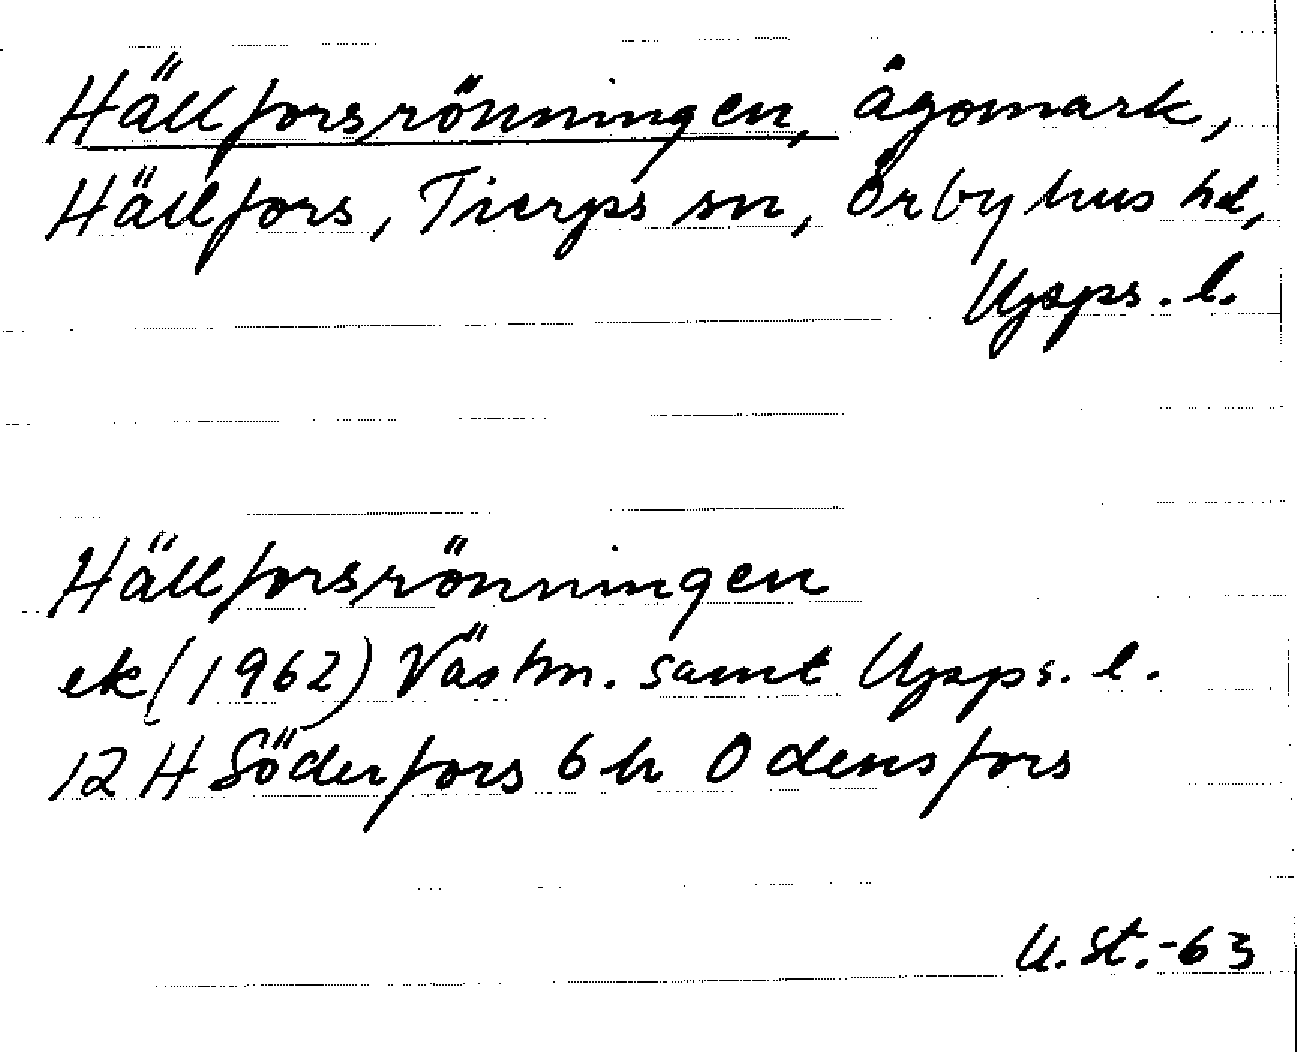 Hällforsrönningen, ägomark,
Hällfors, Tierps sn, Örbyhus hd,
Upps. l.
Hällforsrönningen
ek (1962) Västm. samt Upps. l.
12 H Söderfors 6 h Odensfors
U. St.-63